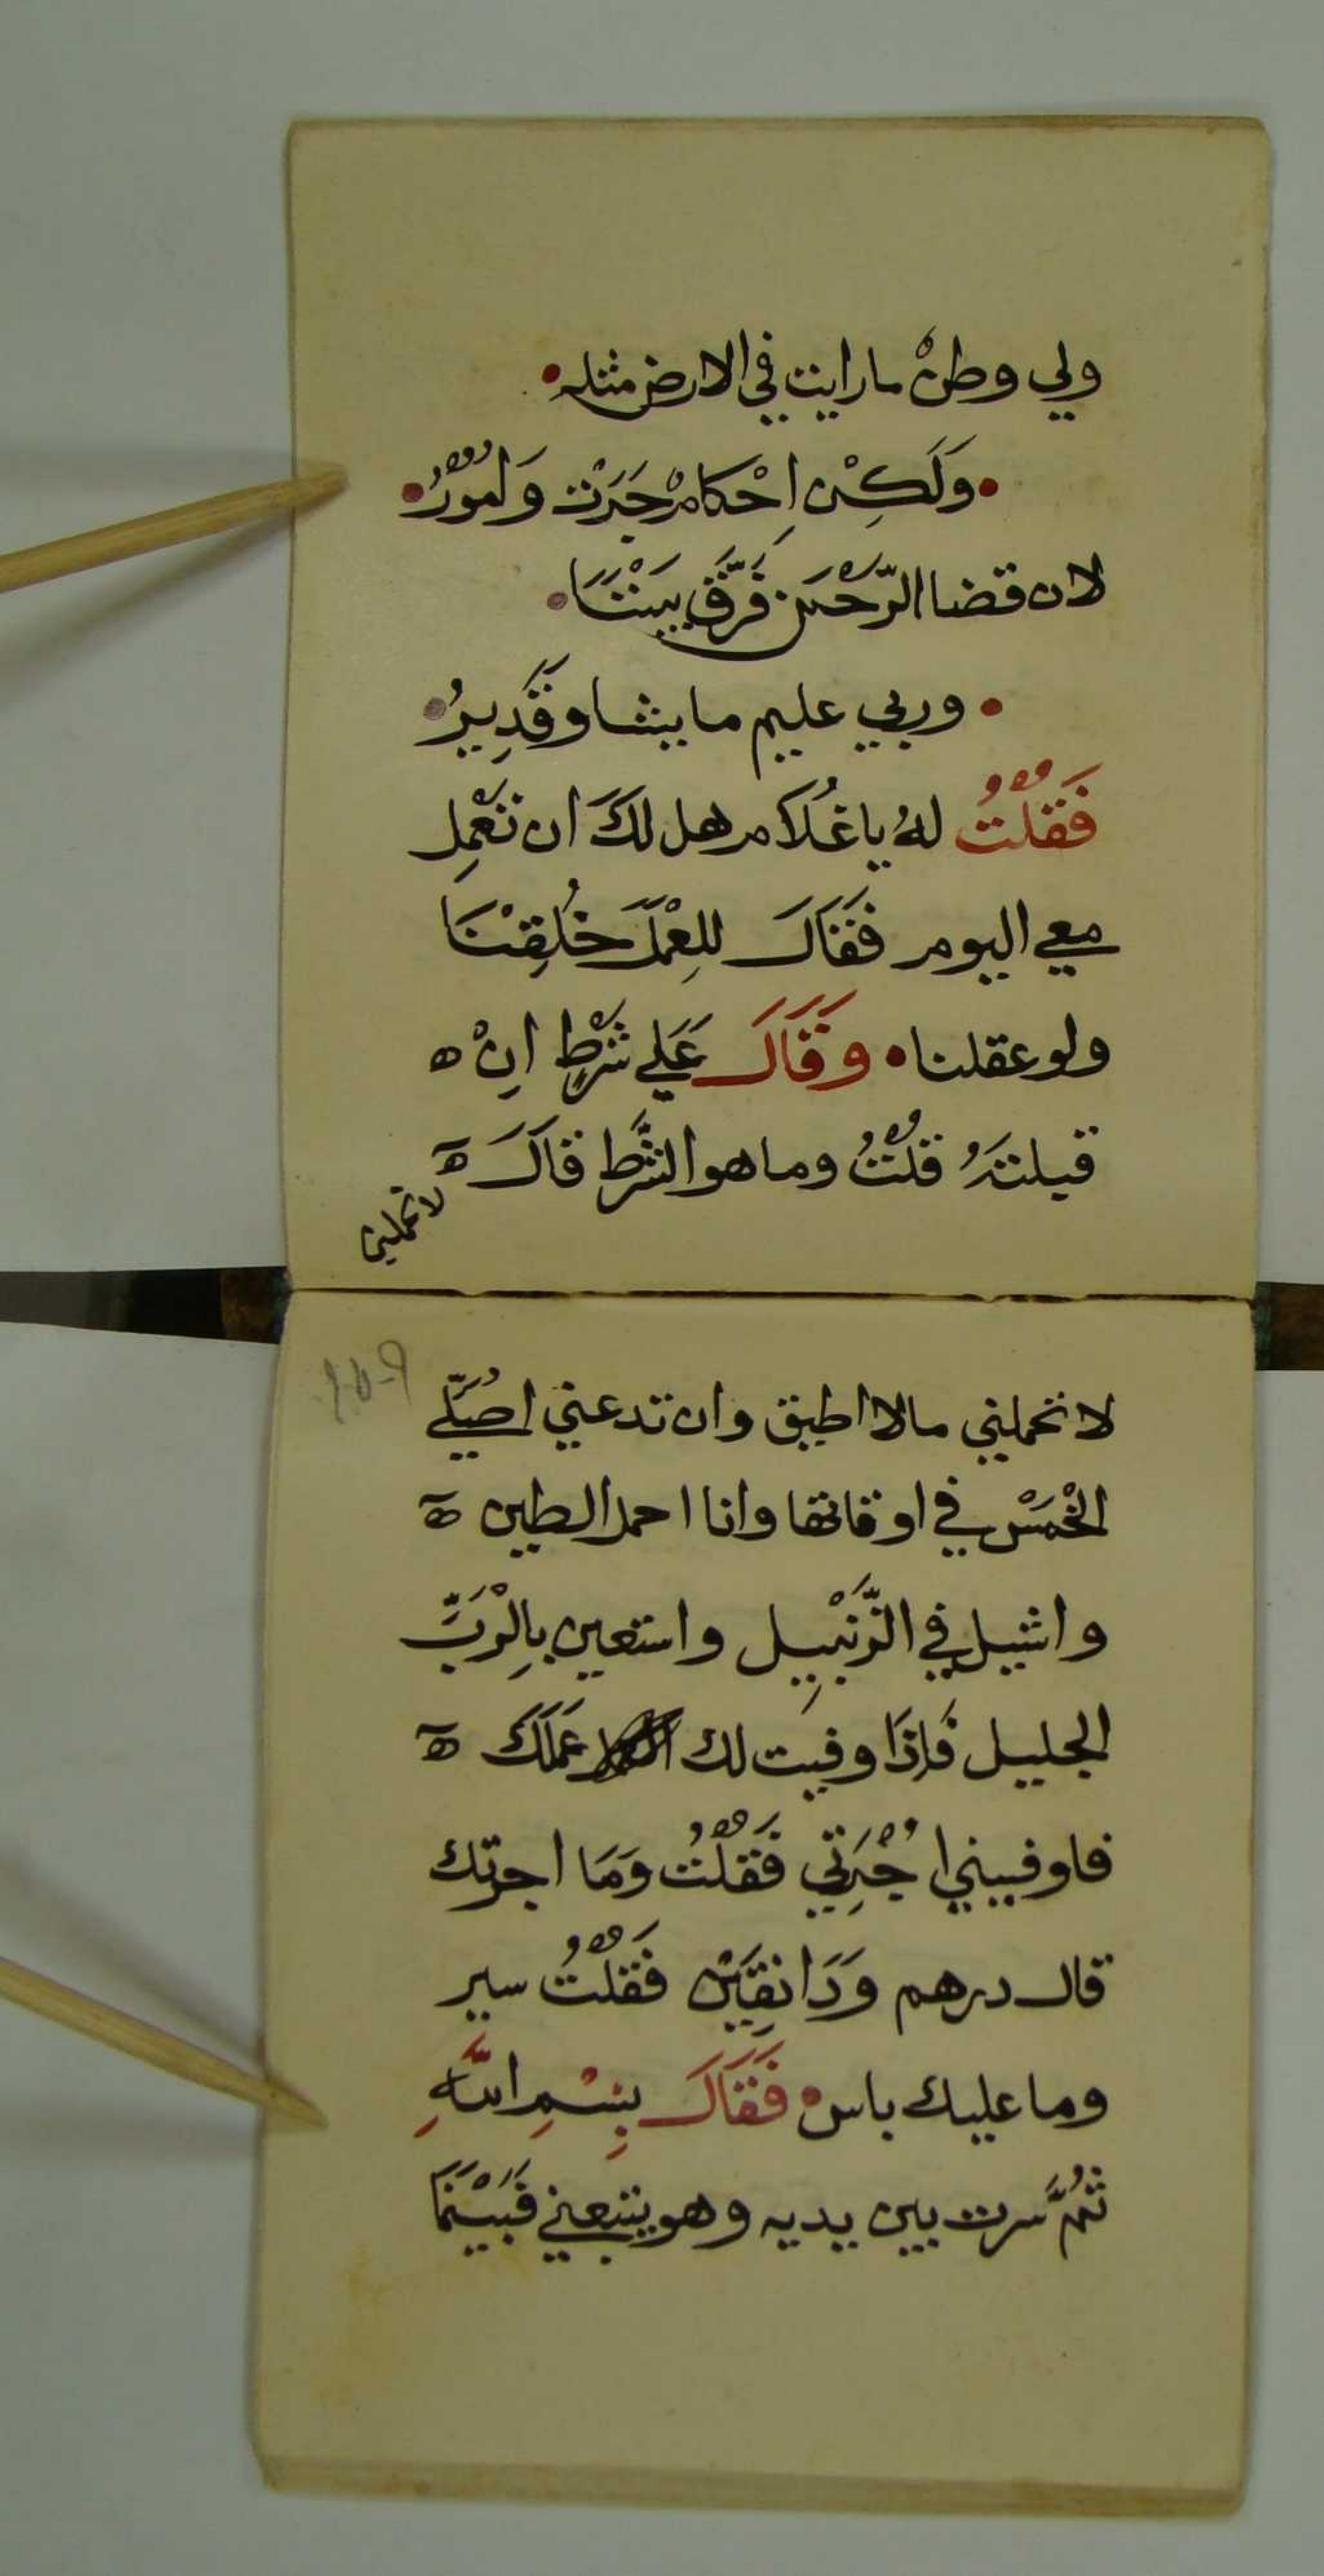 ولي وطنْ ما رايت في الارض مثله
وَلَكِنْ اِحْكامْ جَرَتْ وَامُورُ
لان قضا الرَّحْمَن فَرَّق بَيْنَنَا
وربي عليم ما يشا وقَدِيرُ
فَقُلْتُ لهُ ياغُلَام هل لكَ ان تَعْمِل
معي اليوم فَقَالَ للِعْمَلَ خُلِقْنَا
ولو عقلنا وَقَالَ عَلي شَرْطِ اِنْ ه
قبلتَهُ قُلْتُ وما هو الشَّرط قَالَ ه
لا تحملني
لا تحملني مالا اطيق وان تدعني اصَُلّي
الْخَمَسْ في اوقاتها وانا احمل الطين ه
واشيل في الزَّنْبِيل واستعين بِالْرَبِّ
الجليل فَاِذَا وفيت لك عَمَلَكَ ه
فاوفيني اُجْرَتِي فَقُلْتُ وَمَا اجرتك
قال درهم وَدَانِقَيْن فَقُلْتُ سير
وما عليك باس فَقَالَ بِسْمِ اللَّهِ
ثُمَّ سرت بين يديه وهو يتبعني فَبَيْنَمَا